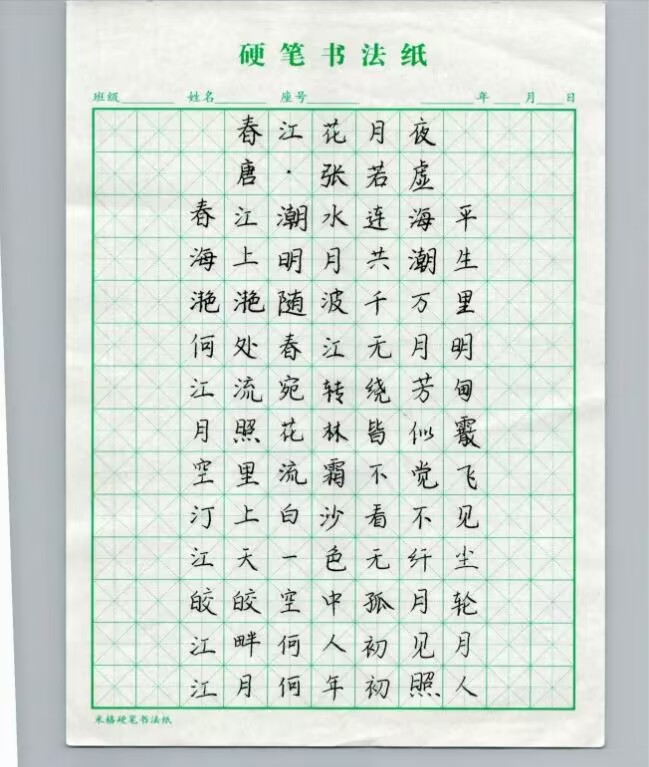 硬笔书法纸
班级 姓名 座号 年 月 日
春江花月夜
唐·张若虚
春江潮水连海平
海上明月共潮生
滟滟随波千万里
何处春江无月明
江流宛转绕芳甸
月照花林皆似霰
空里流霜不觉飞
汀上白沙看不见
江天一色无纤尘
皎皎空中孤月轮
江畔何人初见月
江月何年初照人
米格硬笔书法纸